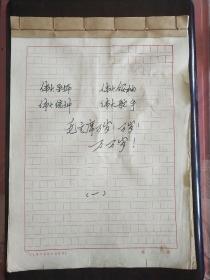 伟大导师 伟大领袖
伟大统帅 伟大舵手
毛主席万岁！万岁！
万万岁！
（一）